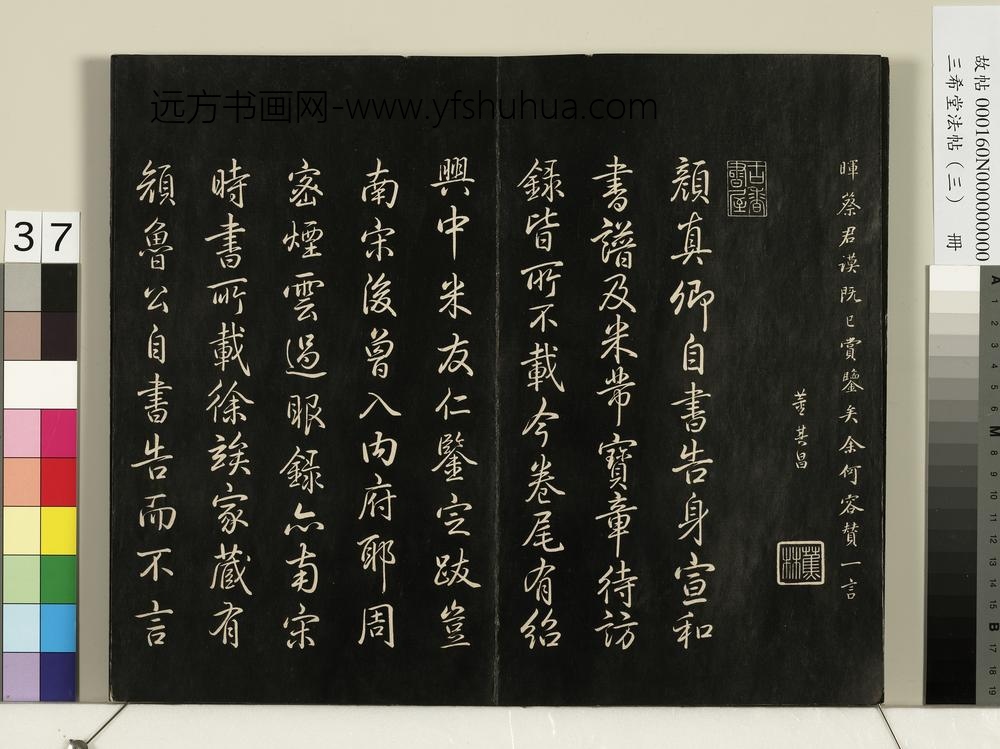 远方书画网-www.yfshuhua.com
故帖 000160N000000000
三希堂法帖（三） 冊
暉蔡君謨既已賞鑒矣余何容贊一言
董其昌
蕉林
古香書屋
顏真卿自書告身宣和
書譜及米芾寶章待訪
錄皆所不載今卷尾有紹
興中米友仁鑒定跋豈
南宋後曾入內府耶周
密煙雲過眼錄亦南宋
時書所載徐琰家藏有
顏魯公自書告而不言
37
A 1 2 3 4 5 6 M 8 9 10 11 12 13 14 15 B 17 18 19